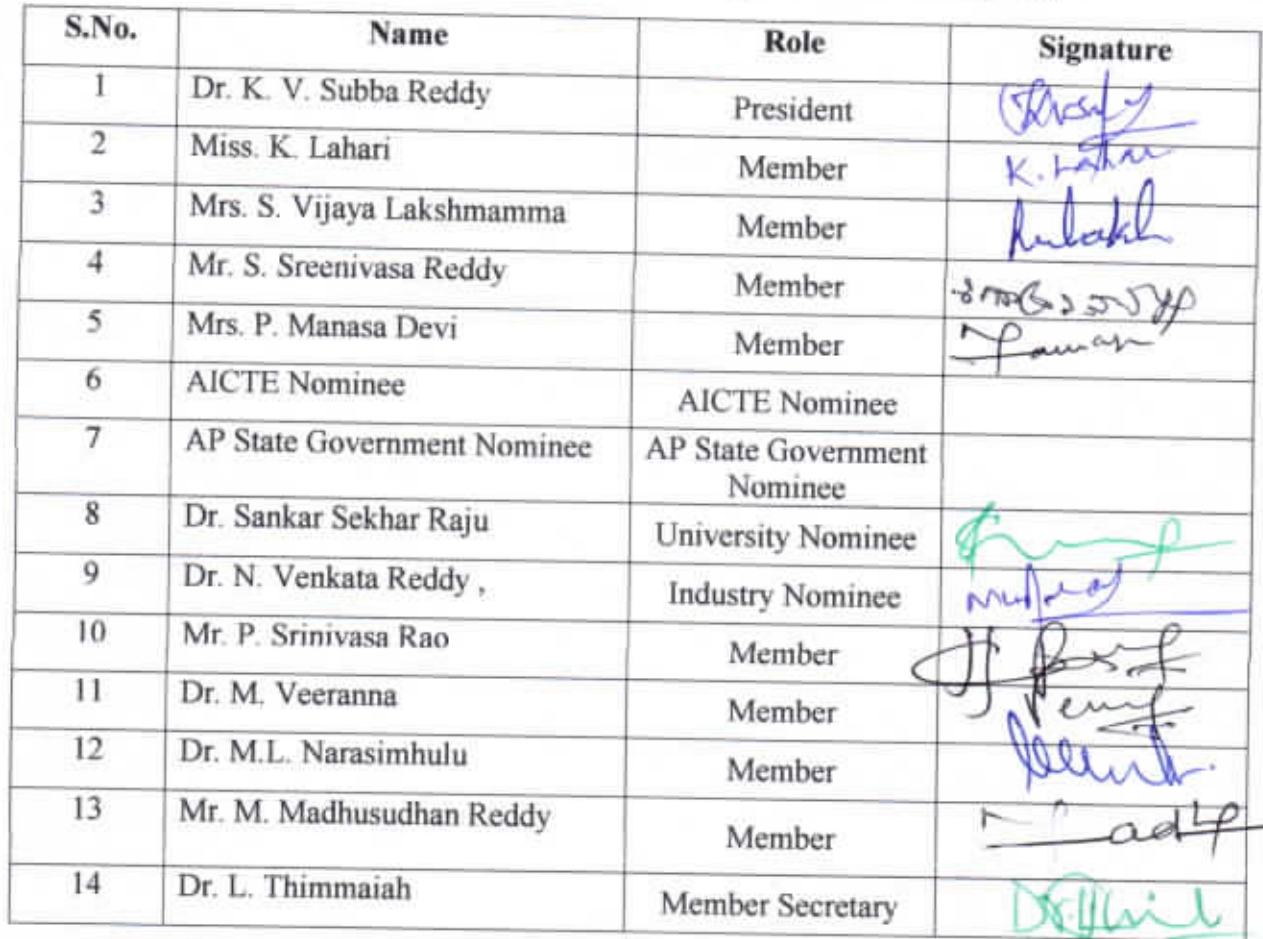 S.No. Name Role Signature
1 Dr. K. V. Subba Reddy President
2 Miss. K. Lahari Member K. Lahari
3 Mrs. S. Vijaya Lakshmamma Member
4 Mr. S. Sreenivasa Reddy Member
5 Mrs. P. Manasa Devi Member
6 AICTE Nominee AICTE Nominee
7 AP State Government Nominee AP State Government
Nominee
8 Dr. Sankar Sekhar Raju University Nominee
9 Dr. N. Venkata Reddy , Industry Nominee
10 Mr. P. Srinivasa Rao Member
11 Dr. M. Veeranna Member
12 Dr. M.L. Narasimhulu Member
13 Mr. M. Madhusudhan Reddy Member
14 Dr. L. Thimmaiah Member Secretary